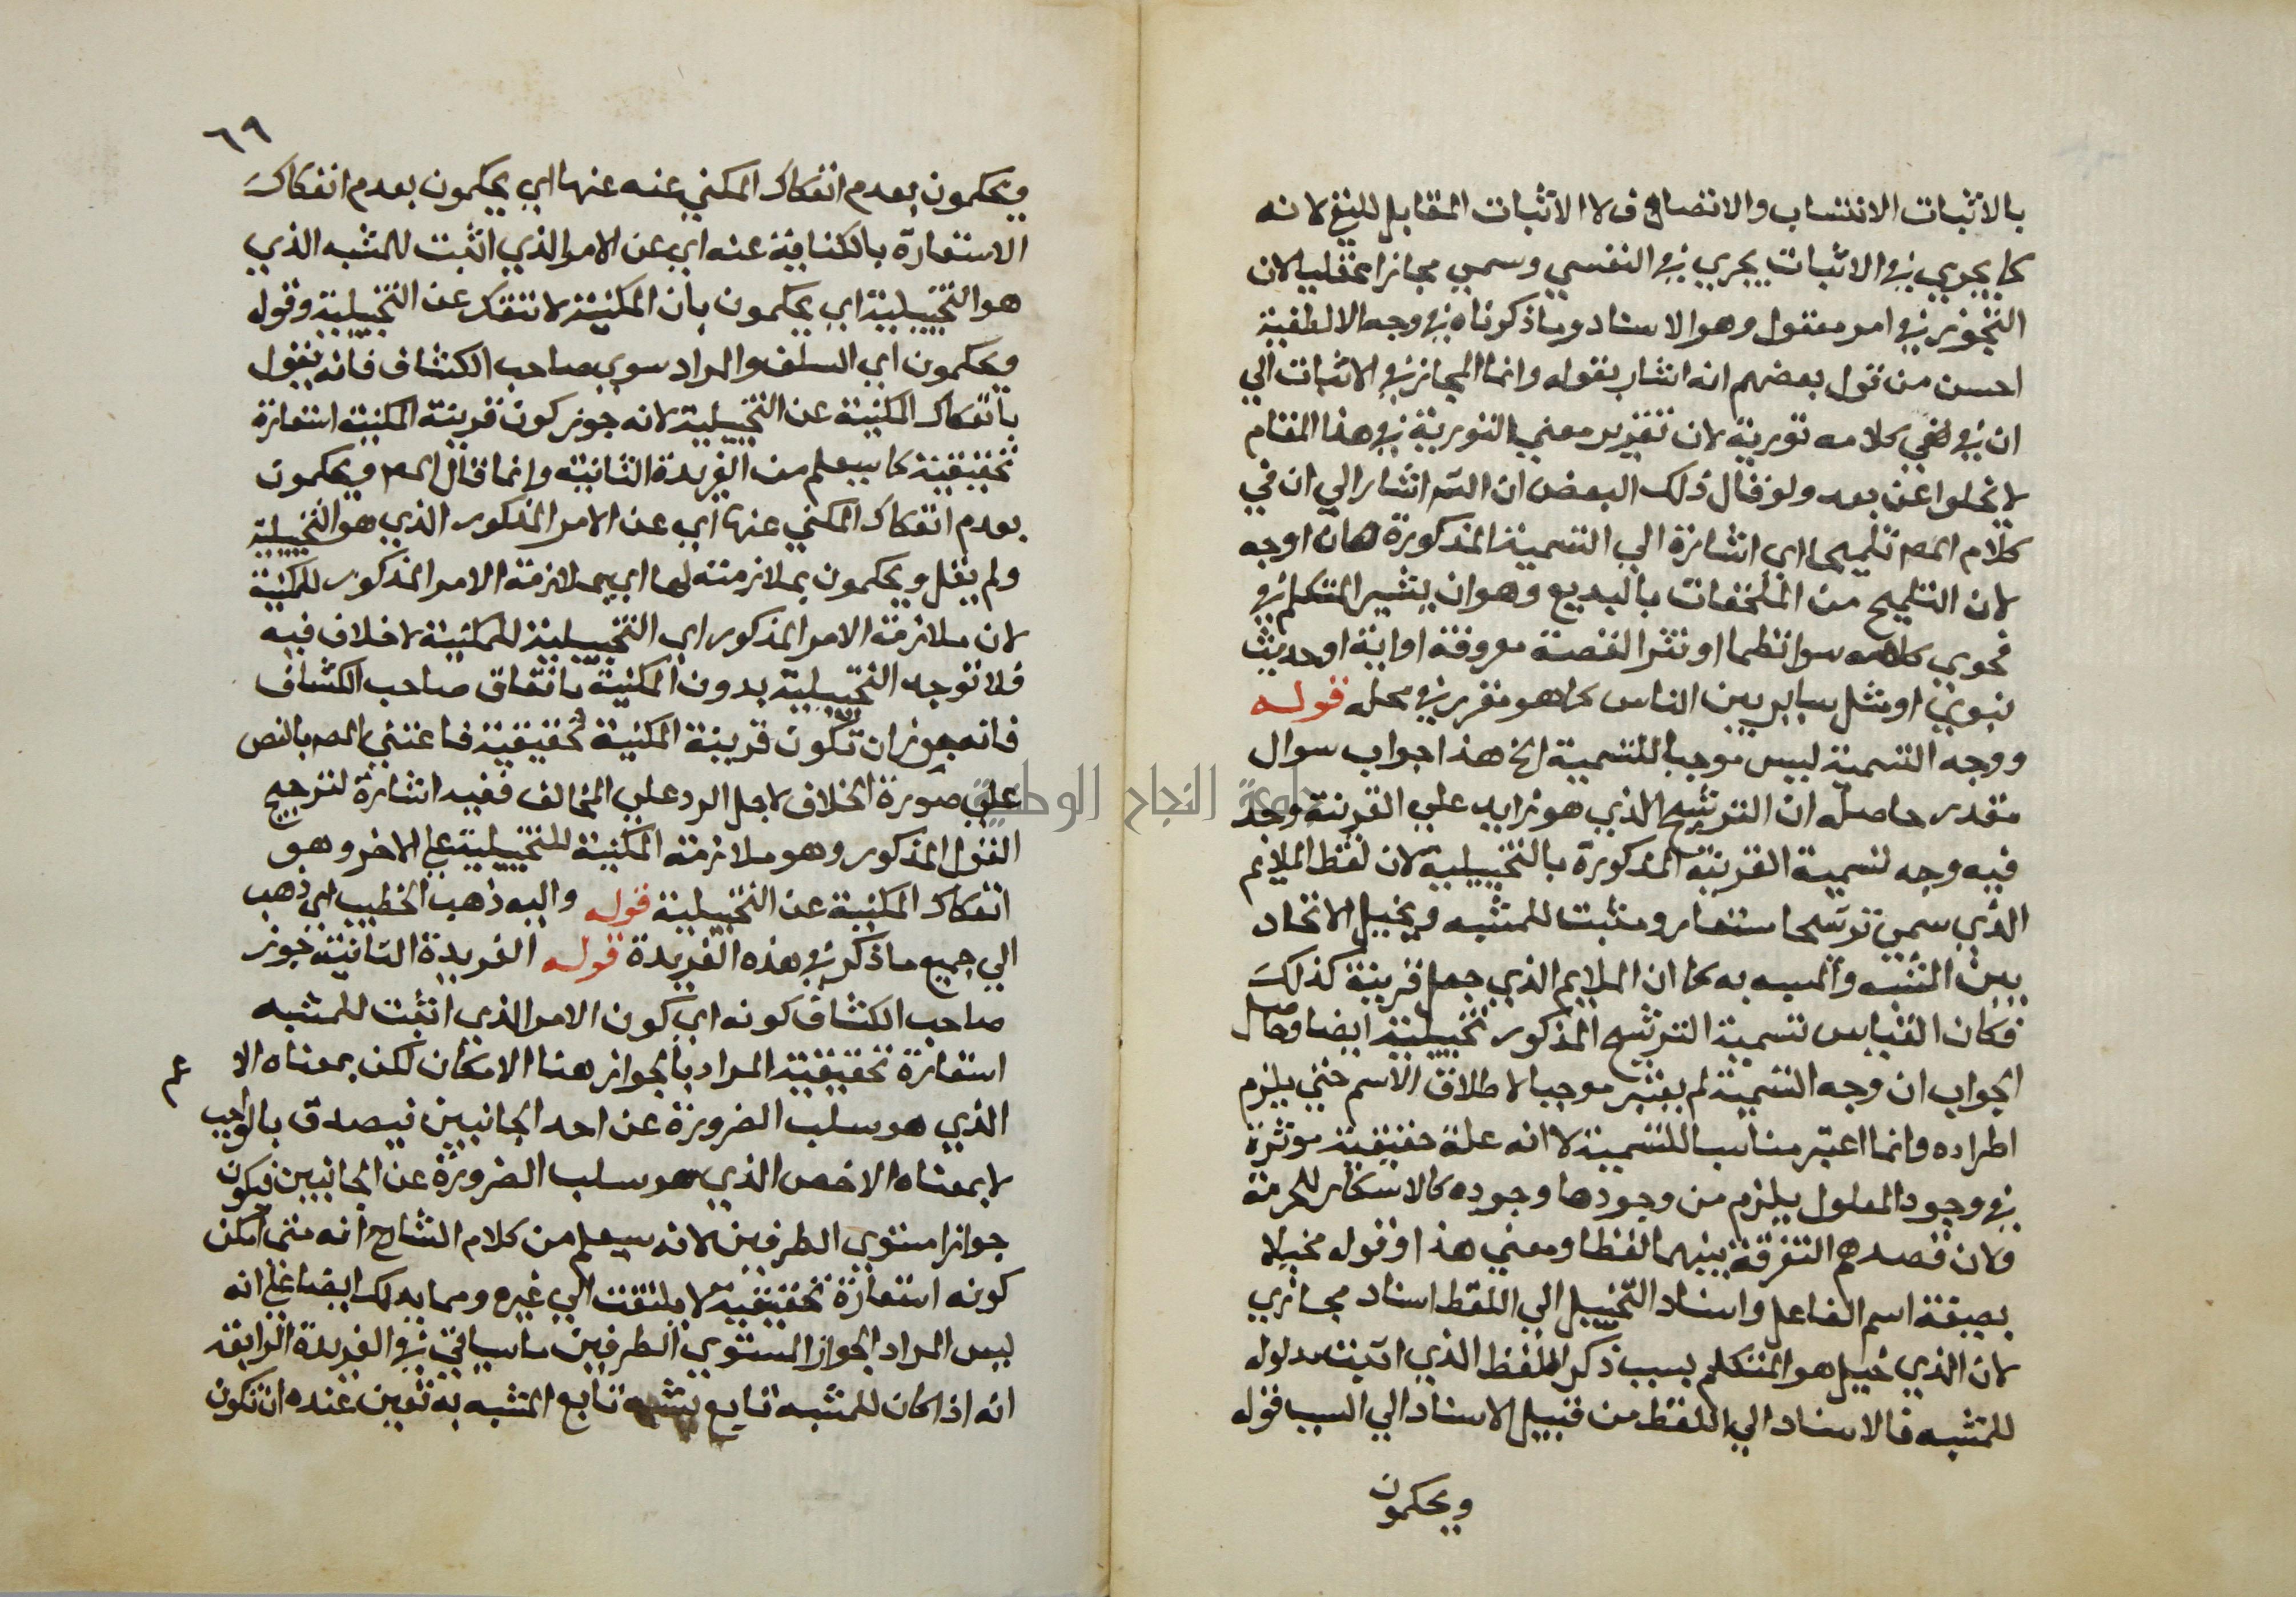 بالاثبات الانتساب والاتصاف لا الاثبات المقابل للنفي لانه
كما يجري في الاثبات يجري في النفي وسمي مجازا عقليا لان
التجوز في امر معقول وهو الاسناد وما ذكرناه في وجه الالطفية
احسن من قول بعضهم انه اشار بقوله وانما المجاز في الاثبات الي
ان في كلامه تورية لان تقرير معني التورية في هذا المقام
لا يخلوا عن بعد ولو قال ذلك البعض ان الش اشار الي ان في
كلام المص تلميحا اي اشارة الي التسمية المذكورة لكان اوجه
لان التلميح من الملحقات بالبديع وهو ان يشير المتكلم في
فحوي كلامه سوا نظما او نثرا لقصة معروفة او اية او حديث
نبوي او مثل ساير بين الناس كما هو مقرر في محله قوله
ووجه التسمية ليس موجبا للتسمية الخ هذا جواب سوال
مقدر حاصله ان الترشيح الذي هو زايد علي القرينة وجد
فيه وجه لتسمية القرينة المذكورة بالتخييلية لان لفظ الملايم
الذي سمي ترشيحا مستعار ومثبت للمشبه ويخيل الاتحاد
بين المشبه والمشبه به كما ان الملايم الذي جعل قرينة كذلك
فكان القياس تسمية الترشيح المذكور تخييلية ايضا وحاصل
الجواب ان وجه التسمية لم يعتبر موجبا لاطلاق الاسم حتي يلزم
اطراده وانما اعتبر مناسبا للتسمية لا انه علة حقيقية موثرة
في وجود المعلول يلزم من وجودها وجوده كالاسكار للحرمة
ولان قصدهم التفرقة بينهما لفظا ومعني هذا وقوله مخيلا
بصيغة اسم الفاعل واسناد التخييل الي اللفظ اسناد مجازي
لان الذي خيل هو المتكلم بسبب ذكر اللفظ الذي اثبت مدلوله
للمشبه فالاسناد الي اللفظ من قبيل الاسناد الي السبب قوله
ويحكمون
٦٩
ويحكمون بعدم انفكاك المكني عنه عنها اي يحكمون بعدم انفكاك
الاستعارة بالكناية عنه اي عن الامر الذي اثبت للمشبه الذي
هو التخييلية اي يحكمون بان المكنية لا تنفك عن التخييلية وقوله
ويحكمون اي السلف والمراد سوي صاحب الكشاف فانه يقول
بانفكاك المكنية عن التخييلية لانه جوز كون قرينة المكنية استعارة
تحقيقية كما سيعلم من الفريدة الثانية وانما قال المص ويحكمون
بعدم انفكاك المكني عنها اي عن الامر المذكور الذي هو التخييلية
ولم يقل ويحكمون بملازمته لها اي بملازمة الامر المذكور للمكنية
لان ملازمة الامر المذكور اي التخييلية للمكنية لا خلاف فيه
فلا توجد التخييلية بدون المكنية باتفاق صاحب الكشاف
فانه يجوز ان تكون قرينة المكنية تحقيقية فاعتني المص بالنص
علي صورة الخلاف لاجل الرد علي المخالف ففيه اشارة لترجيح
القول المذكور وهو ملازمة المكنية للتخييلية علي الاخر وهو
انفكاك المكنية عن التخييلية قوله واليه ذهب الخطيب اي ذهب
الي جميع ما ذكر في هذه الفريدة قوله الفريدة الثانية جوز
صاحب الكشاف كونه اي كون الامر الذي اثبت للمشبه
استعارة تحقيقية المراد بالجواز هنا الامكان لكن بمعناه الا عم
الذي هو سلب الضرورة عن احد الجانبين فيصدق بالواجب
لا بمعناه الاخص الذي هو سلب الضرورة عن الجانبين فيكون
جوازا مستوي الطرفين لانه سيعلم من كلام الشارح انه متي امكن
كونه استعارة تحقيقية لا يلتفت الي غيره ومما يدلك ايضا علي انه
ليس المراد الجواز المستوي الطرفين ما سياتي في الفريدة الرابعة
انه اذا كان للمشبه تابع يشبه تابع المشبه به تعين عنده ان تكون